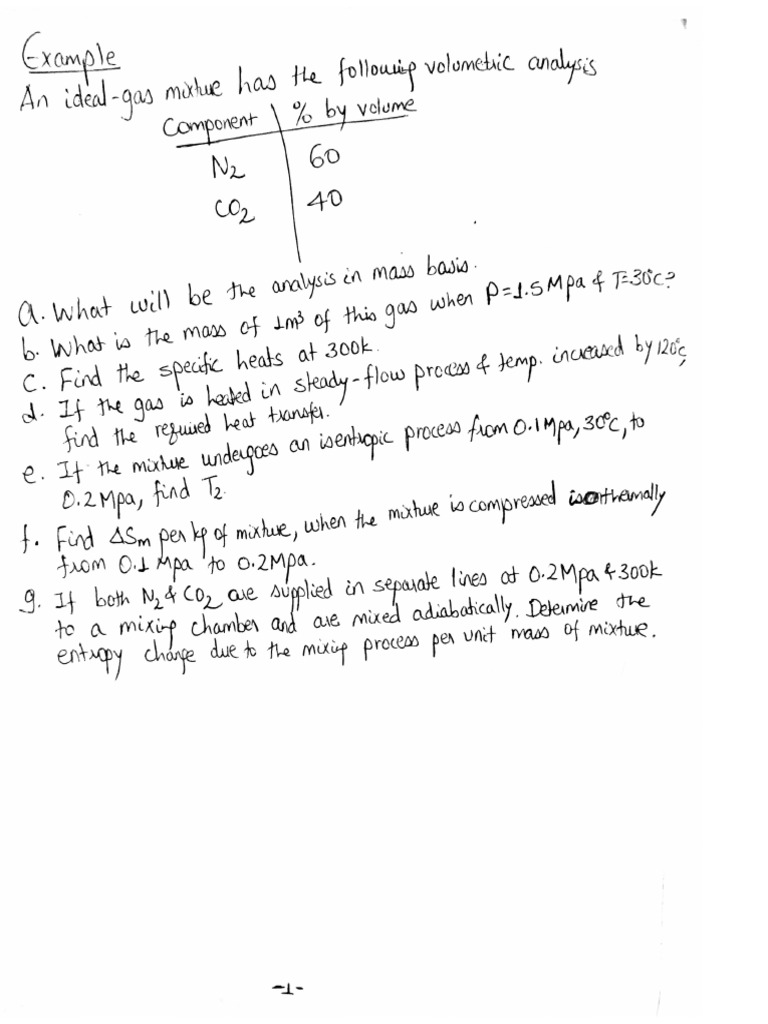 Example
An ideal-gas mixture has the following volumetric analysis
Component % by volume
N2 60
CO2 40
a. What will be the analysis in mass basis.
b. What is the mass of 1m3 of this gas when P=1.5Mpa & T=30°C?
c. Find the specific heats at 300k.
d. If the gas is heated in steady-flow process & temp. increased by 120°C,
find the required heat transfer.
e. If the mixture undergoes an isentropic process from 0.1Mpa, 30°C, to
0.2Mpa, find T2.
f. Find ΔSm per kg of mixture, when the mixture is compressed isothermally
from 0.1 Mpa to 0.2Mpa.
g. If both N2 & CO2 are supplied in separate lines at 0.2Mpa & 300k
to a mixing chamber and are mixed adiabatically. Determine the
entropy change due to the mixing process per unit mass of mixture.
-1-